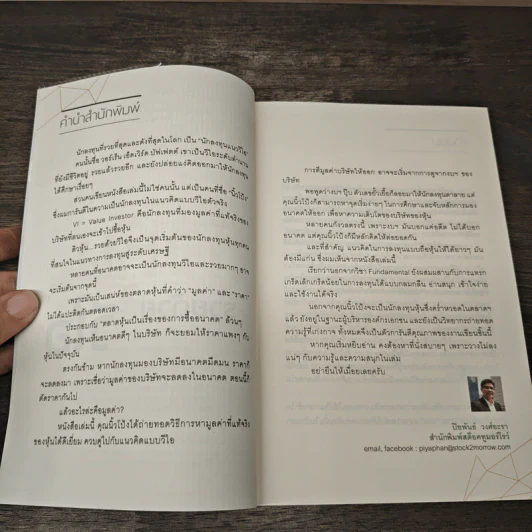 คำนำสำนักพิมพ์
นักลงทุนที่รวยที่สุดและดังที่สุดในโลก เป็น "นักลงทุนแนววีไอ"
คนนั้นชื่อ วอร์เร็น เอ็ดเวิร์ด บัฟเฟตต์ เขาเป็นวีไอระดับตำนาน
ที่ยังมีชีวิตอยู่ รวยแล้วรวยอีก และยังปล่อยแง่คิดออกมาให้นักลงทุน
ได้ศึกษาเรื่อยๆ
ส่วนคนเขียนหนังสือเล่มนี้ไม่ใช่คนนั้น แต่เป็นคนที่ชื่อ "นิ้วโป้ง"
ซึ่งแมกการันตีในความเป็นนักลงทุนในแนวคิดแบบวีไอตัวจริง
VI = Value Investor คือนักลงทุนที่มองมูลค่าที่แท้จริงของ
บริษัทที่ตนเองจะเข้าไปซื้อหุ้น
คิวหุ้น...รวยด้วยวีไอจึงเป็นจุดเริ่มต้นของนักลงทุนหุ้นทุกคน
ที่สนใจในแนวทางการลงทุนสู่ระดับเศรษฐี
หลายคนที่อนาคตอาจจะเป็นนักลงทุนวีไอและรวยมากๆ อาจ
จะเริ่มต้นจากจุดนี้
เพราะมันเป็นเสน่ห์ของตลาดหุ้นที่คำว่า "มูลค่า" และ "ราคา"
ไม่ได้แปะติดกันตลอดเวลา
ประกอบกับ "ตลาดหุ้นเป็นเรื่องของการซื้ออนาคต" ล้วนๆ
นักลงทุนเห็นอนาคตดีๆ ในบริษัท ก็จะยอมให้ราคาแพงๆ กับ
หุ้นในปัจจุบัน
ตรงกันข้าม หากนักลงทุนมองบริษัทมีอนาคตมืดมน ราคาก็
จะลดลงมา เพราะเชื่อว่ามูลค่าของบริษัทจะลดลงในอนาคต ตอนนี้ก็
ตัดราคากันไป
แล้วอะไรล่ะคือมูลค่า?
หนังสือเล่มนี้ คุณนิ้วโป้งได้ถ่ายทอดวิธีการหามูลค่าที่แท้จริง
ของหุ้นได้ดีเยี่ยม ควบคู่ไปกับแนวคิดแบบวีไอ
การตีมูลค่าบริษัทให้ออก อาจจะเริ่มจากการดูจากงบฯ ของ
บริษัท
พอพูดว่างบฯ ปุ๊บ ตัวเลขยั้วเยี้ยก็ลอยมาให้นักลงทุนตาลาย แต่
คุณนิ้วโป้งก็สามารถหาจุดเริ่มง่ายๆ ในการศึกษาและจับหลักการมอง
อนาคตให้ออก เพื่อหาความเติบโตของบริษัทของหุ้น
หลายคนกังวลตรงนี้ เพราะงบฯ มันบอกแค่อดีต ไม่ได้บอก
อนาคต แต่คุณนิ้วโป้งก็มีหลักคิดให้ต่อยอดกัน
และที่สำคัญ แนวคิดในการลงทุนแบบถือหุ้นให้ได้ยาวๆ มัน
ต้องมีแก่น ซึ่งผมเห็นจากหนังสือเล่มนี้
เรียกว่านอกจากวิชา Fundamental ยังผสมผสานกับการแทรก
เกร็ดเล็กเกร็ดน้อยในการลงทุนได้แบบกลมกลืน อ่านสนุก เข้าใจง่าย
และใช้งานได้จริง
นอกจากคุณนิ้วโป้งจะเป็นนักลงทุนหุ้นซึ่งคร่ำหวอดในตลาดฯ
แล้ว ยังอยู่ในฐานะผู้บริหารองค์กรเอกชน และยังเป็นวิทยากรถ่ายทอด
ความรู้ที่เก่งกาจ ทั้งหมดจึงเป็นตัวการันตีคุณภาพของงานเขียนชิ้นนี้
หากคุณเริ่มหยิบอ่าน คงต้องหาที่นั่งสบายๆ เพราะวางไม่ลง
แน่ๆ กับความรู้และความสนุกในเล่ม
อย่ายืนให้เมื่อยเลยครับ
ปิยพันธ์ วงศ์ยะรา
สำนักพิมพ์สต็อคทูมอร์โรว์
email, facebook : piyaphan@stock2morrow.com